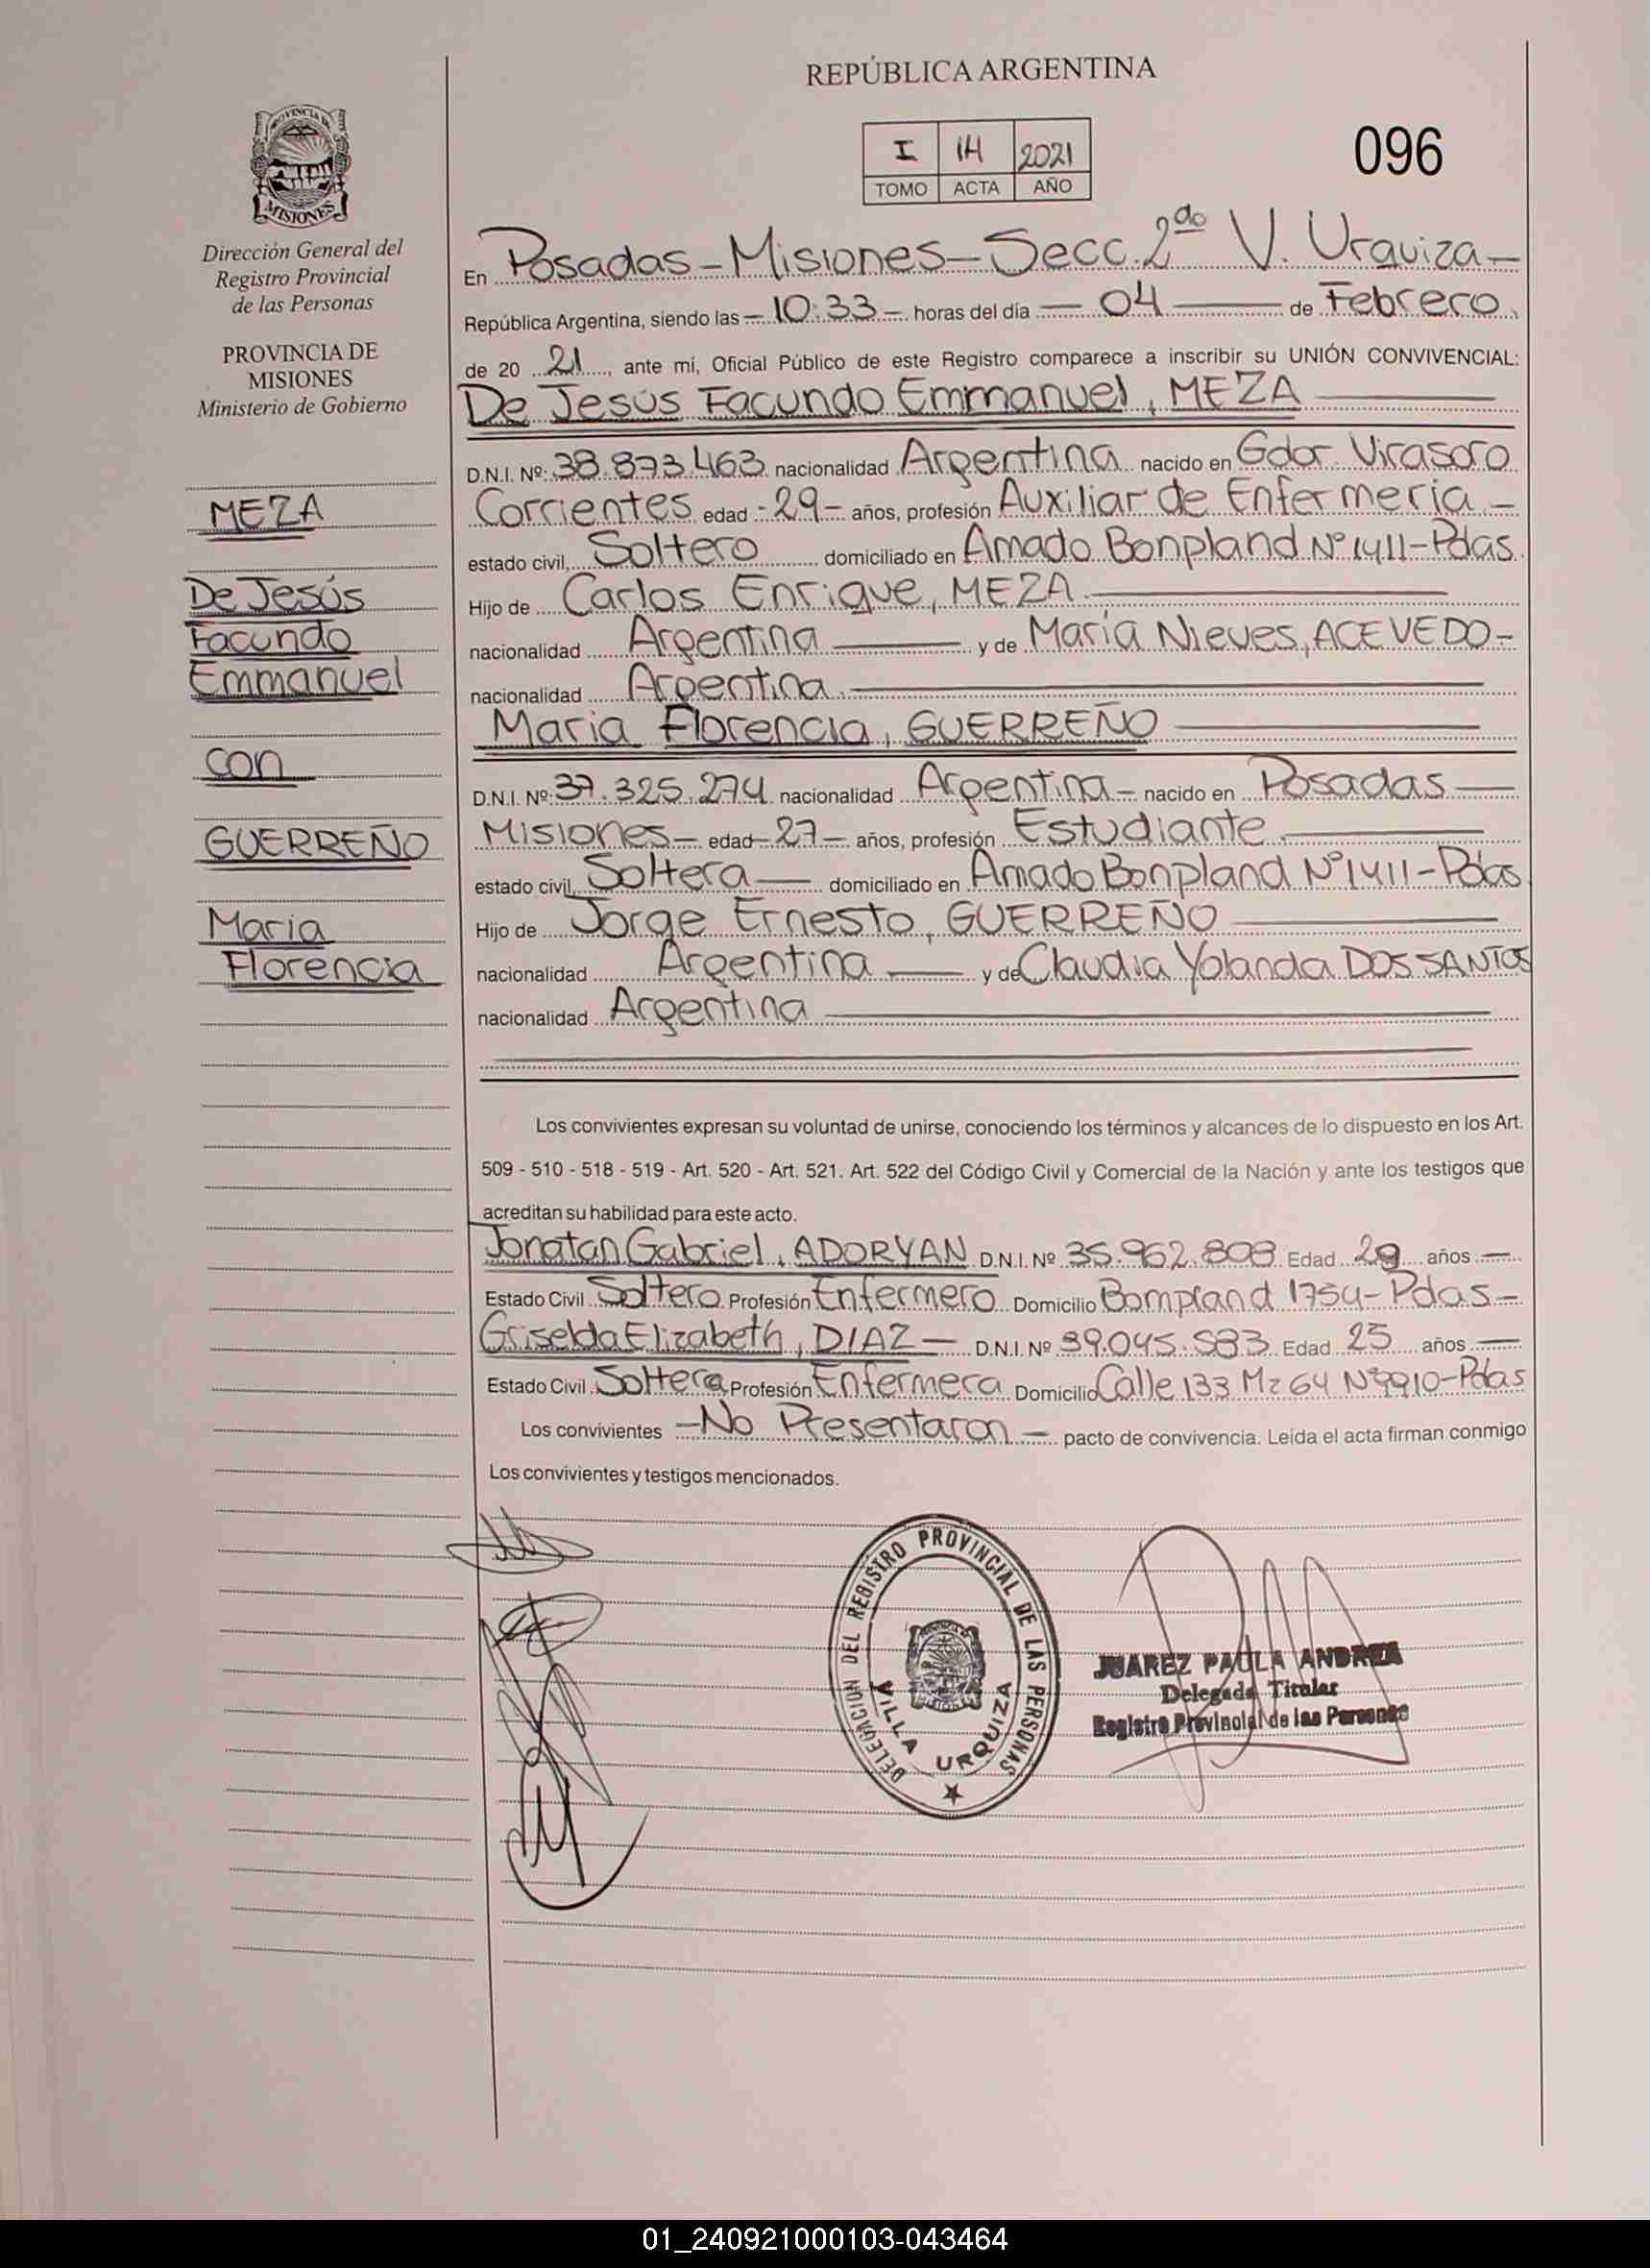 REPÚBLICA ARGENTINA
I 14 2021
TOMO ACTA AÑO
096
PROVINCIA DE
MISIONES
Dirección General del
Registro Provincial
de las Personas
PROVINCIA DE
MISIONES
Ministerio de Gobierno
MEZA
De Jesús
Facundo
Emmanuel
con
GUERREÑO
Maria
Florencia
En Posadas - Misiones - Secc. 2do V. Urquiza -
República Argentina, siendo las - 10:33 - horas del día - 04 - de Febrero
de 20 21, ante mí, Oficial Público de este Registro comparece a inscribir su UNIÓN CONVIVENCIAL:
De Jesús Facundo Emmanuel, MEZA
D.N.I. Nº: 38.873.463 nacionalidad Argentina nacido en Gdor. Virasoro
Corrientes edad - 29 - años, profesión Auxiliar de Enfermeria -
estado civil, Soltero domiciliado en Amado Bonpland Nº 1411 - Pdas
Hijo de Carlos Enrique, MEZA
nacionalidad Argentina y de María Nieves, ACEVEDO -
nacionalidad Argentina
Maria Florencia, GUERREÑO
D.N.I. Nº: 37.325.274 nacionalidad Argentina - nacido en Posadas
Misiones - edad - 27 - años, profesión Estudiante
estado civil, Soltera domiciliado en Amado Bonpland Nº 1411 - Pdas
Hijo de Jorge Ernesto, GUERREÑO
nacionalidad Argentina y de Claudia Yolanda DOS SANTOS
nacionalidad Argentina
Los convivientes expresan su voluntad de unirse, conociendo los términos y alcances de lo dispuesto en los Art.
509 - 510 - 518 - 519 - Art. 520 - Art. 521. Art. 522 del Código Civil y Comercial de la Nación y ante los testigos que
acreditan su habilidad para este acto.
Jonatan Gabriel, ADORYAN D.N.I. Nº 35.962.808 Edad 29 años
Estado Civil Soltero Profesión Enfermero Domicilio Bompland 1754 - Pdas -
Griselda Elizabeth, DIAZ - D.N.I. Nº 39.045.583 Edad 25 años
Estado Civil Soltera Profesión Enfermera Domicilio Calle 133 Mz 64 Nº 9910 - Pdas
Los convivientes - No Presentaron - pacto de convivencia. Leída el acta firman conmigo
Los convivientes y testigos mencionados.
DELEGACION DEL REGISTRO PROVINCIAL DE LAS PERSONAS
VILLA URQUIZA
JUAREZ PAULA ANDREA
Delegada Titular
Registro Provincial de las Personas
01_240921000103-043464